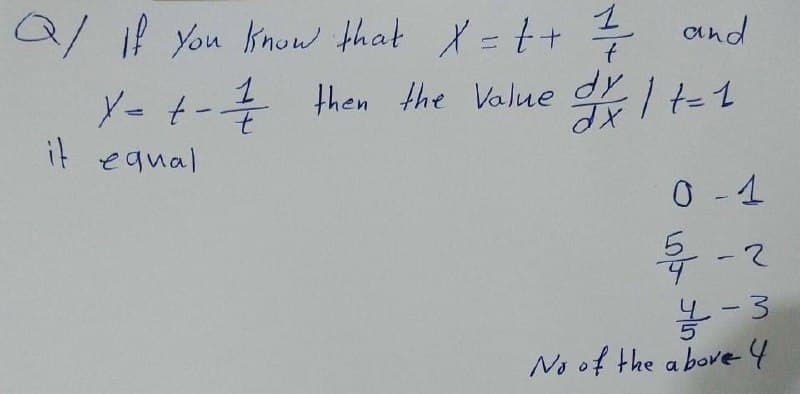 Q/ if You Know that X = t + 1/t and
Y = t - 1/t then the Value dY/dX | t=1
it equal
0 - 1
5/4 - 2
4/5 - 3
No of the above - 4